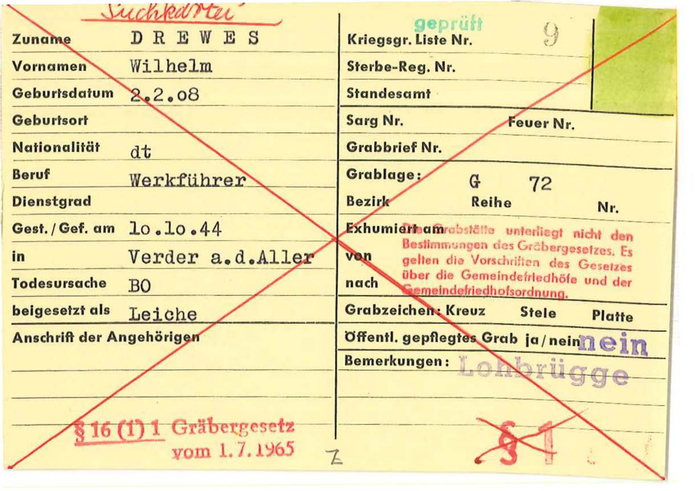 Suchkartei
Zuname D R E W E S
Vornamen Wilhelm
Geburtsdatum 2.2.o8
Geburtsort
Nationalität dt
Beruf Werkführer
Dienstgrad
Gest./Gef. am 1o.1o.44
in Verder a.d.Aller
Todesursache BO
beigesetzt als Leiche
Anschrift der Angehörigen
§ 16 (1) 1 Gräbergesetz
vom 1.7.1965
Z
geprüft
Kriegsgr. Liste Nr. 9
Sterbe-Reg. Nr.
Standesamt
Sarg Nr. Feuer Nr.
Grabbrief Nr.
Grablage: G 72
Bezirk Reihe Nr.
Exhumiert am
von
nach
Die Grabstätte unterliegt nicht den
Bestimmungen des Gräbergesetzes. Es
gelten die Vorschriften des Gesetzes
über die Gemeindefriedhöfe und der
Gemeindefriedhofsordnung.
Grabzeichen: Kreuz Stele Platte
Öffentl. gepflegtes Grab ja/nein nein
Bemerkungen: Lohbrügge
§ 1